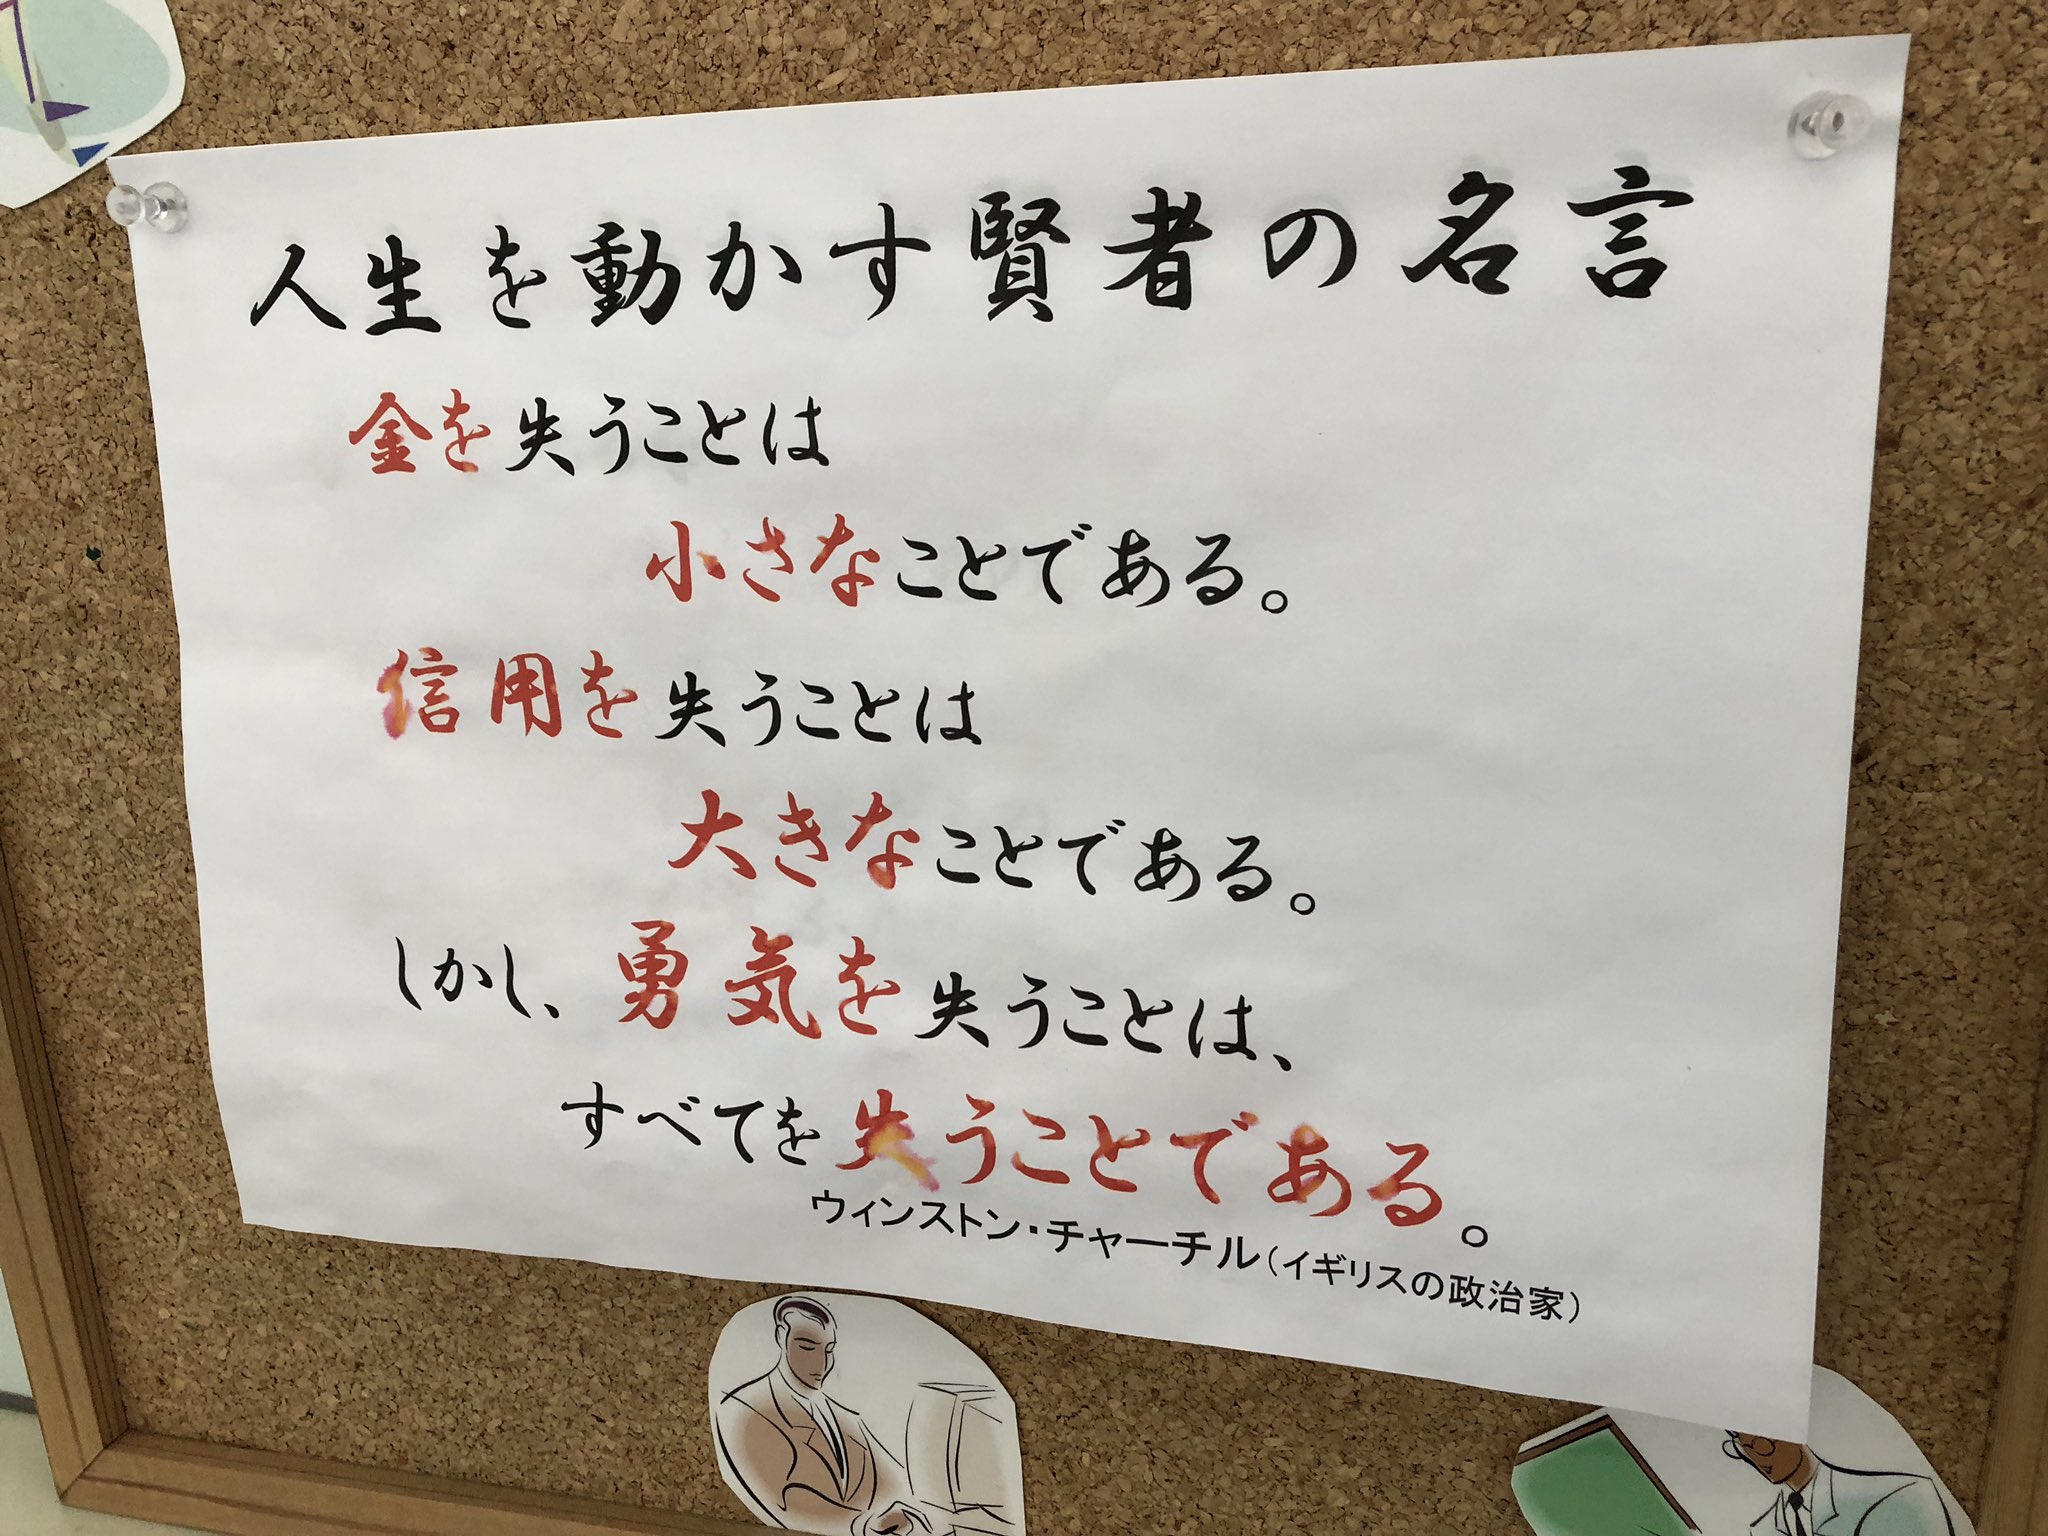 人生を動かす賢者の名言
金を失うことは
小さなことである。
信用を失うことは
大きなことである。
しかし、勇気を失うことは、
すべてを失うことである。
ウィンストン・チャーチル(イギリスの政治家)